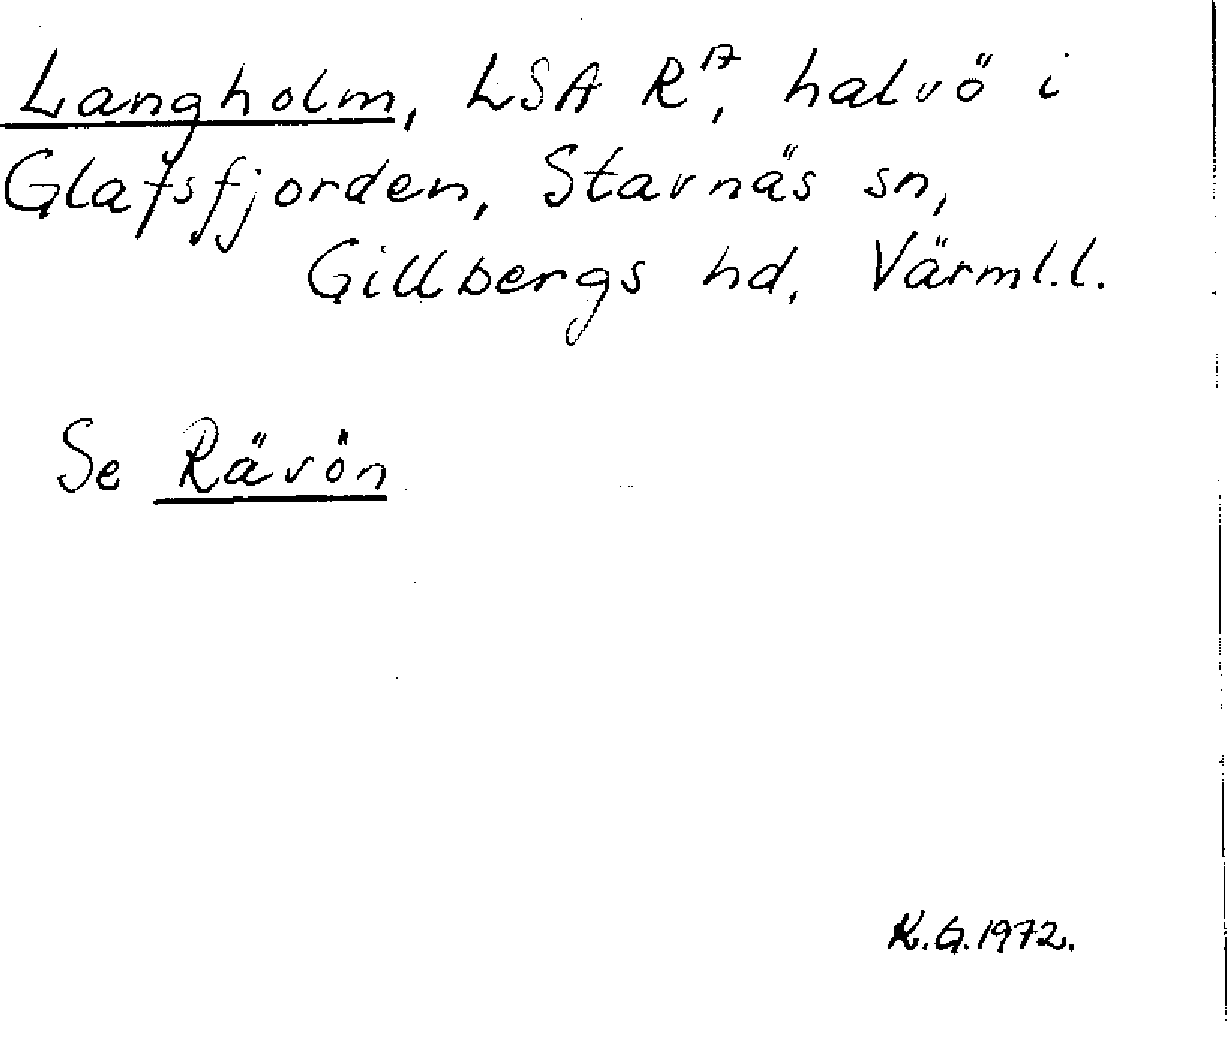 Langholm, LSA R17, halvö i
Glafsfjorden, Stavnäs sn,
Gillbergs hd, Värml.l.
Se Rävön
K.G.1972.